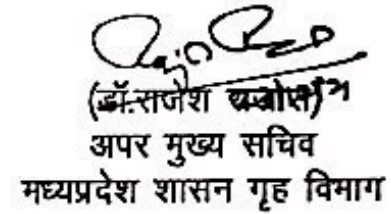 (डॉ.राजेश
अपर मुख्य सचिव
मध्यप्रदेश शासन गृह विभाग